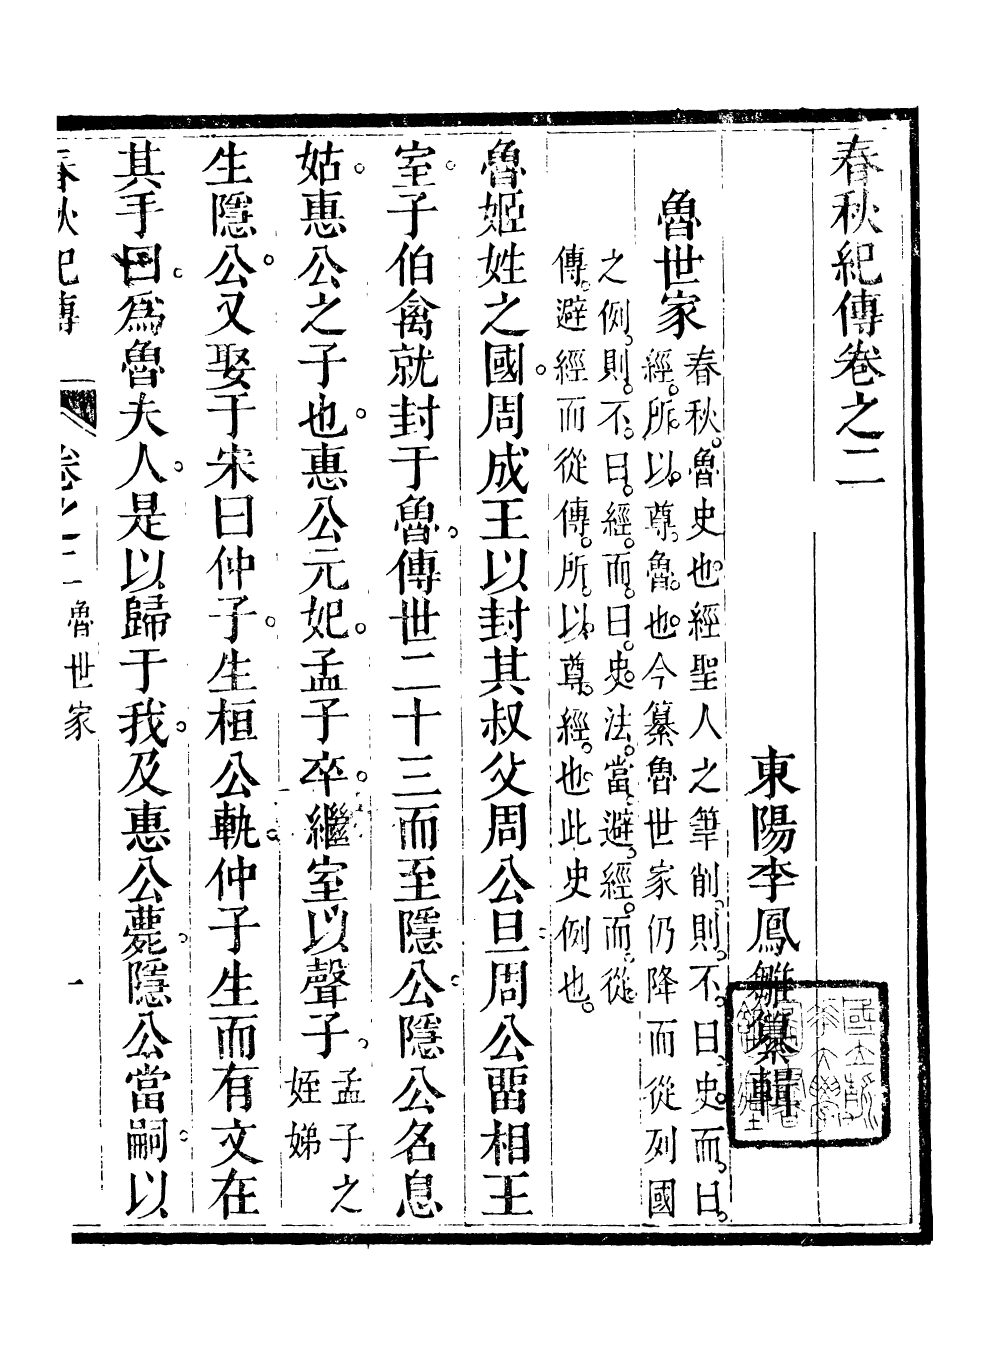 春秋紀傳卷之二
東陽李鳳雛纂輯
魯世家
春秋。魯史也。經聖人之筆削。則不。曰。史。而。曰。
經。所。以。尊。魯。也。今纂魯世家仍降而從列國
之例。則。不。曰。經。而。曰。史。法。當。避。經。而。從。
傳。避經而從傳。所。以。尊。經。也。此史例也。
魯姬姓之國。周成王以封其叔父周公旦。周公畱相王
室。子伯禽就封于魯。傳世二十三而至隱公。隱公名息
姑。惠公之子也。惠公元妃。孟子卒。繼室以聲子。
孟子之
姪娣
生隱公。又娶于宋曰仲子。生桓公軌。仲子生而有文在
其手曰。爲魯夫人。是以歸于我。及惠公薨。隱公當嗣。以
春秋紀傳
卷之二
魯世家
一